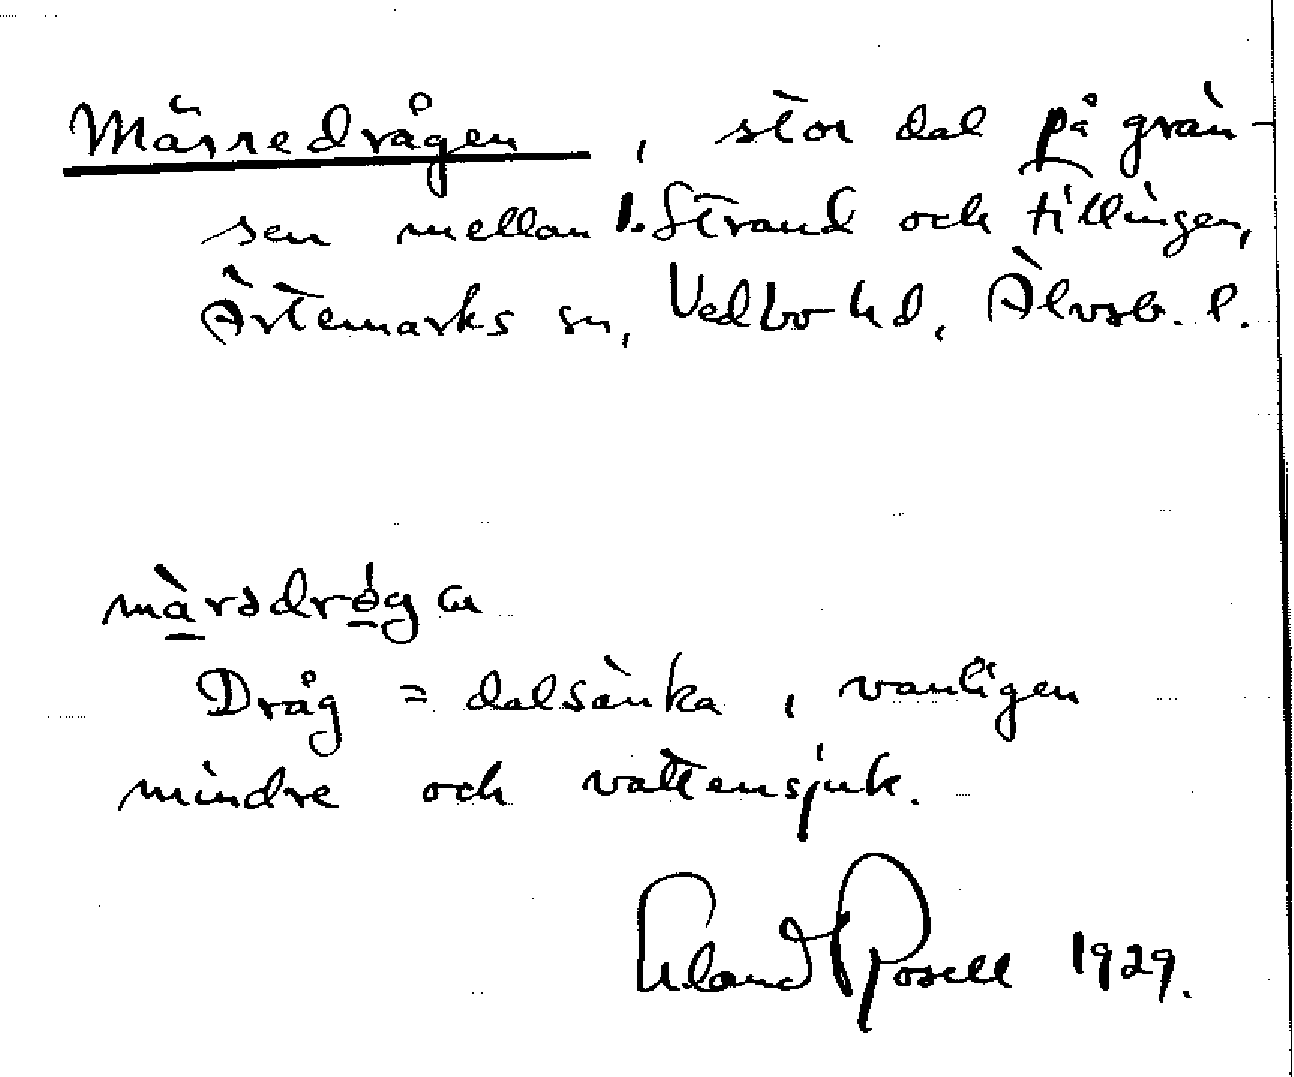 Märredrågen, stor dal på grän-
sen mellan l. Strand och tillingen,
Ärtemarks sn, Vedbo hd, Älvsb. l.
märədrøgəն
Dråg = dalsänka, vanligen
mindre och vattensjuk.
Erland Rosell 1929.